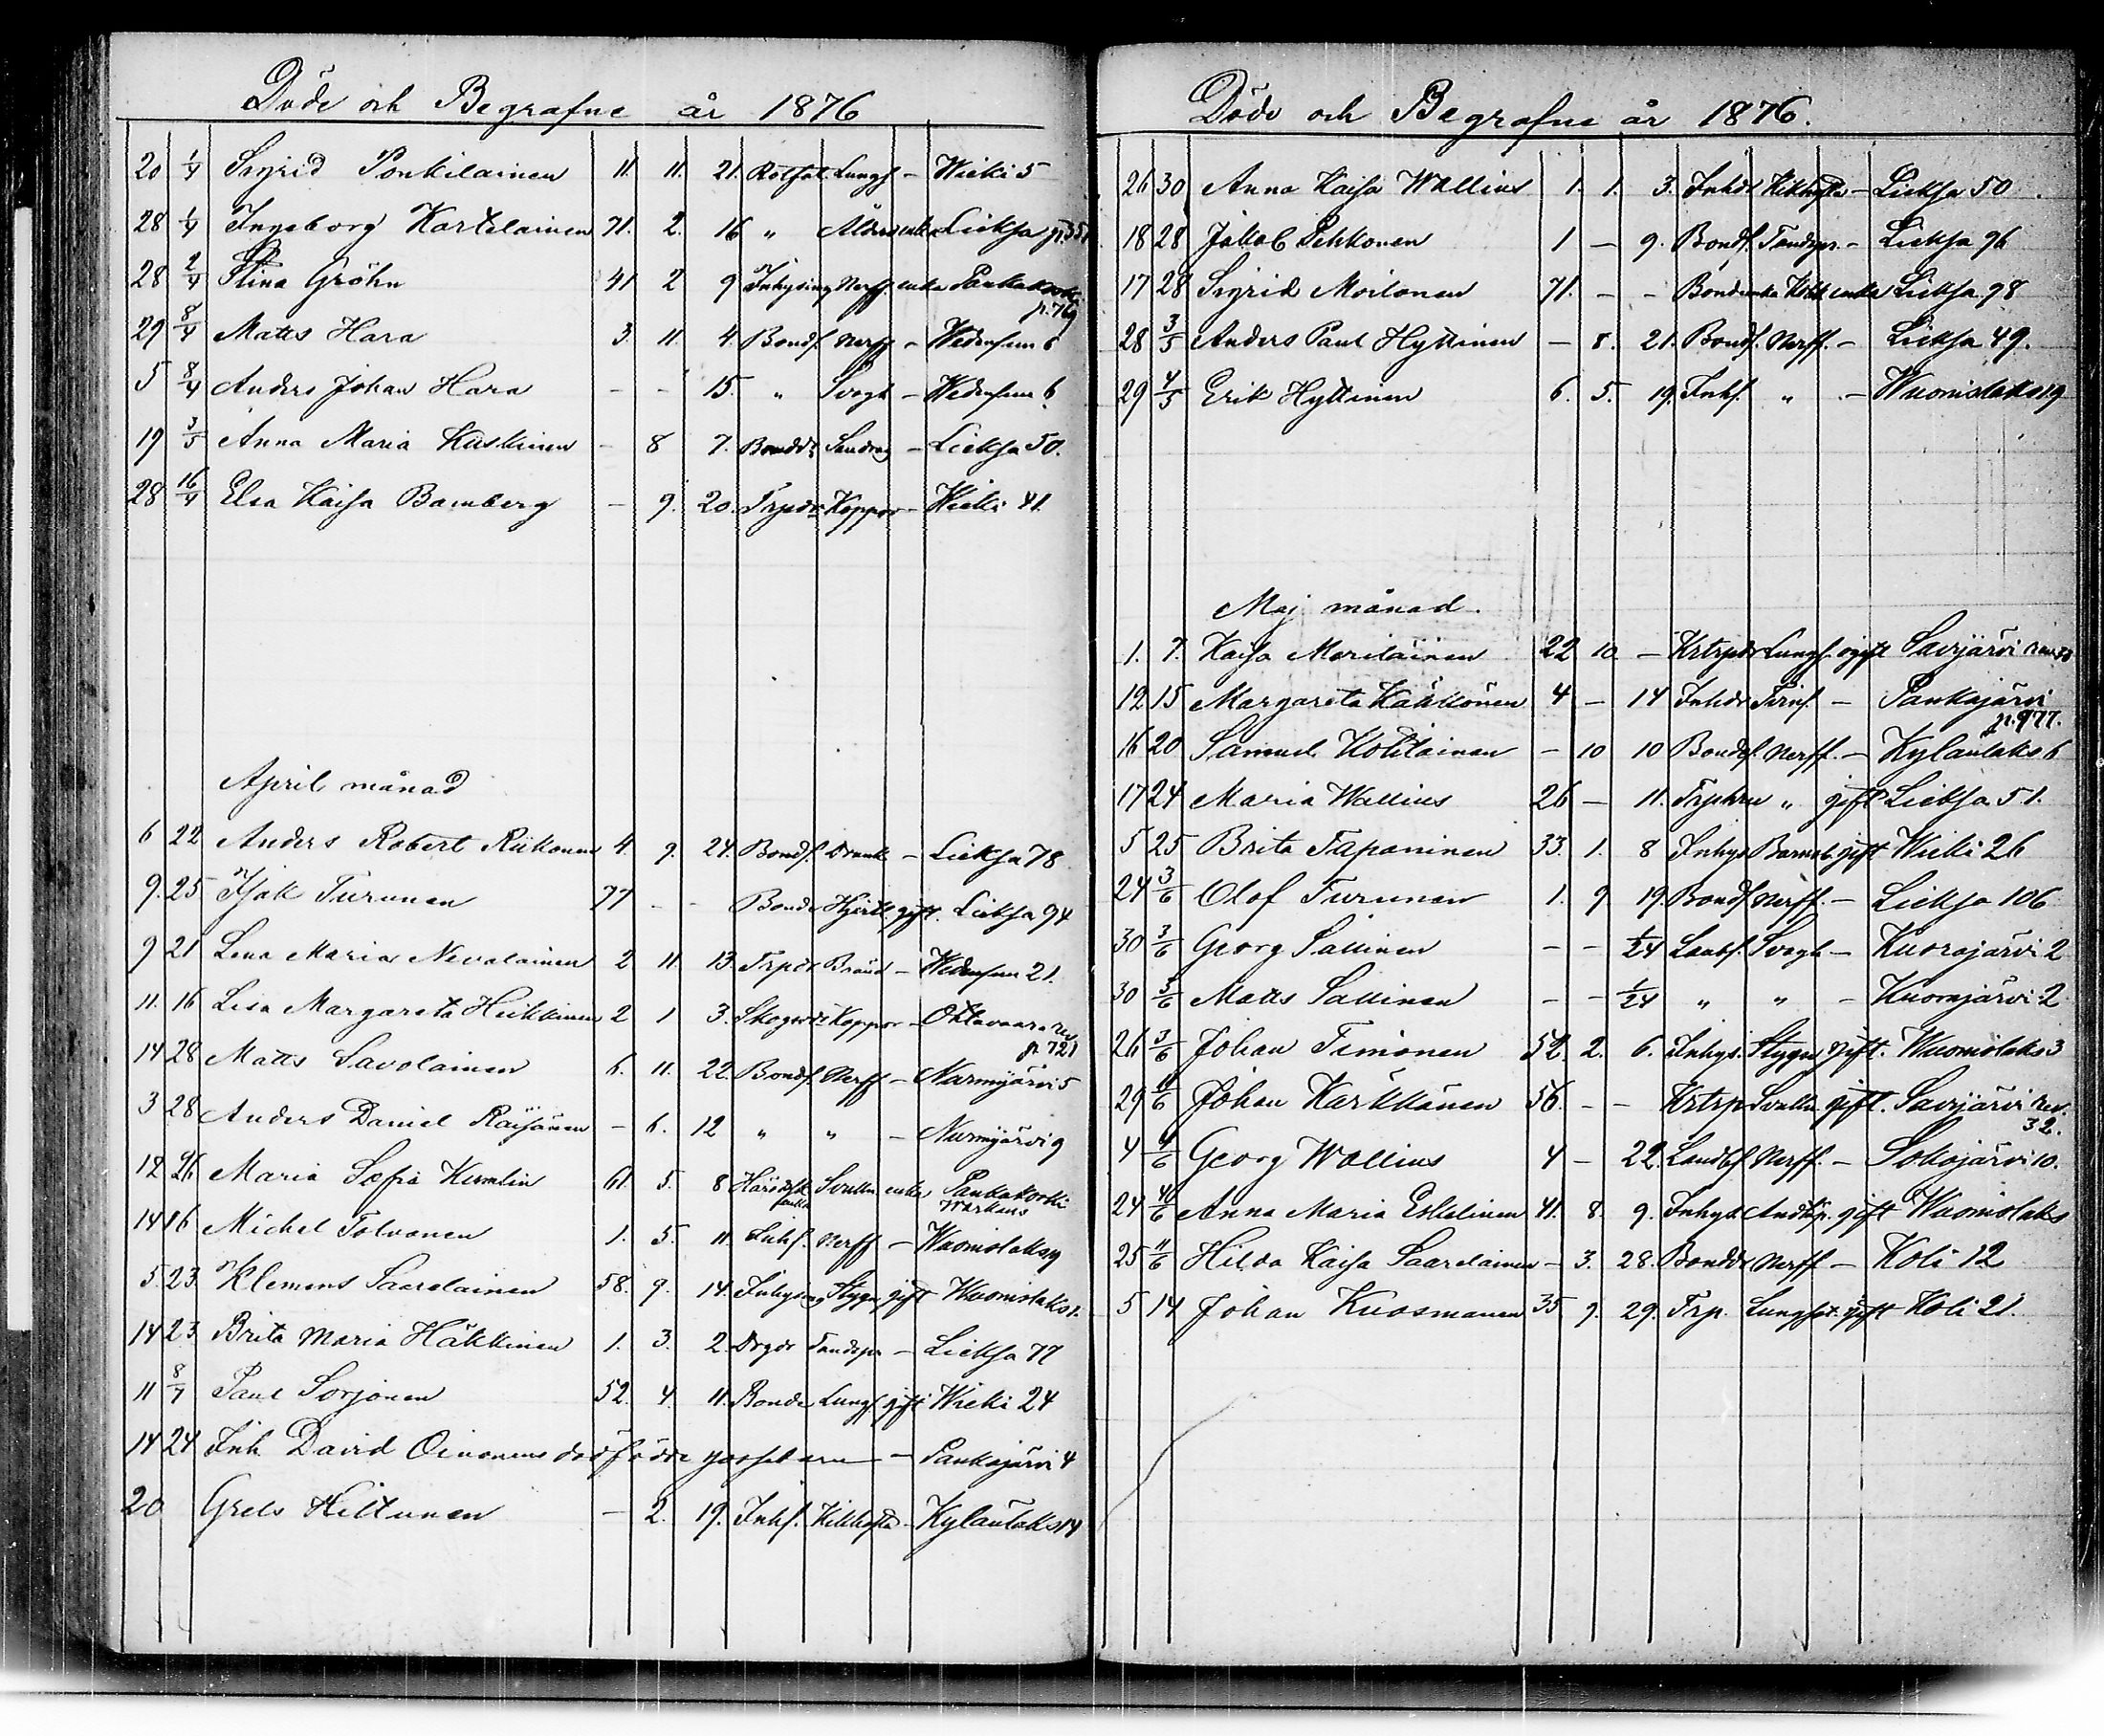 Döde och Begrafne år 1876
20 1/4 Sigrid Ponkilainen 11. 11. 21. Rotfat. Lungs. - Wieki 5
28 1/4 Ingeborg Kortelainen 71. 2. 16 " Ålders enka Lieksa
28 2/4 Stina Gröhn 41 2 9 Inhysing Nerff. enka Pankakoski
p. 769
29 8/4 Matts Hara 3. 11. 4. Bondf. Nerff - Wedensuu 6
5 8/4 Anders Johan Hara - - 15. " Svagh - Wedensuu 6.
19 3/5 Anna Maria Kuskinen - 8 7. Bonddr Landrag - Lieksa 50.
28 16/4 Elsa Kaisa Bamberg - 9. 20. Trpdr Koppor - Wieki 41.
April månad
6 22 Anders Robert Riikonen 4. 9. 24. Bondf. Drunk - Lieksa 78
9. 25 Isak Turunen 77 - - Bonde Hjertl. gift. Lieksa 94
9 21 Lena Maria Nevalainen 2 11. 13. Trpdr Bränd - Wedensuu 21.
11. 16 Lisa Margareta Heikkinen 2 1 3. Skogvdr Koppor - Ohtavaara rev
p. 721
14 28 Matts Savolainen 6. 11. 22. Bondf. Nerff - Nurmijärvi 5
3 28 Anders Daniel Räisänen - 6. 12 " " - Nurmijärvi 9
12 26 Maria Sofia Kumlin 61. 5. 8 Svulln. enka Pankakoski
Warkaus
14 16 Michel Tolvanen 1. 5. 11. Inhf. Nerff - Wuonislaks 19
5 23 Klemens Saarelainen 58. 9. 14. Inhysing Stygn gift Wuonislaks 1.
14 23 Brita Maria Häkkinen 1. 3. 2. Drgdr Tandspr - Lieksa 77
11 8/7 Paul Sorjonen 52. 4. 11. Bonde Lungs. gift Wieki 24
14 24 Inh. David Oinonens dödfödde gossebarn - Pankajärvi 4
20 Grels Hiltunen - 2. 19. Inhf. Kikhosta - Kylänlaks 14
Döde och Begrafne år 1876.
26 30 Anna Kaisa Wallius 1. 1. 3. Inhdr Kikhosta - Lieksa 50
18 28 Jakob Pehkonen 1 - 9. Bondf. Tandspr. - Lieksa 96
17 28 Sigrid Moilanen 71. - - Bondenka enka Lieksa 98
28 3/5 Anders Paul Hyttinen - 8. 21. Bondf. Nerff. - Lieksa 49.
29 4/5 Erik Hyttinen 6. 5. 19. Inhf. " - Wuonislaks 19
Maj månad.
1. 7. Kaisa Meriläinen 22 10. - Krtrpdr Lungs. ogift Savijärvi
12 15 Margareta Käkkönen 4 - 14 Inhdr Tvinf. - Pankajärvi
p. 977.
16 20 Samuel Kotilainen - 10 10 Bondf. Nerff. - Kylänlaks 6
17 24 Maria Wallius 26 - 11. Trphru " gift Lieksa 51.
5 25 Brita Taponinen 33. 1. 8 Inhys Barnsb. gift Wieki 26
24 3/6 Olof Turunen 1. 9 19. Bondf Nerff. - Lieksa 106
30 3/6 Georg Sallinen - - 1/24 Landbf. Svagh - Kuorajärvi 2
30 3/6 Matts Sallinen - - 1/24 " " - Kuorajärvi 2
26 3/6 Johan Timonen 52. 2. 6. Inhys. Stygn gift. Wuonislaks 3
29 11/6 Johan Karkkänen 56. - - Krtrp Svulln. gift. Savijärvi rev.
32.
4 4/6 Georg Wallius 4 - 22. Landbf Nerff. - Sokojärvi 10.
24 10/6 Anna Maria Eskelinen 41. 8. 9. Inhys. Andtäp. gift Wuonislaks
25 11/6 Hilda Kaisa Saarelainen - 3. 28. Bonddr Nerff - Koli 12
5 14 Johan Kuosmanen 35. 9. 29. Trp. Lungsot. gift Koli 21.